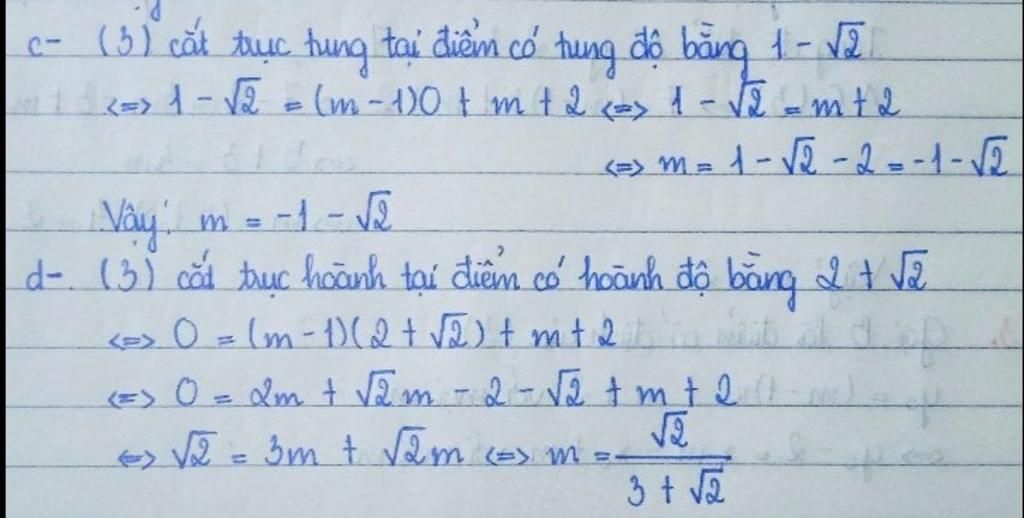 c- (3) cắt trục tung tại điểm có tung độ bằng 1 - √2
<=> 1 - √2 = (m - 1)0 + m + 2 <=> 1 - √2 = m + 2
<=> m = 1 - √2 - 2 = -1 - √2
Vậy: m = -1 - √2
d- (3) cắt trục hoành tại điểm có hoành độ bằng 2 + √2
<=> 0 = (m - 1)(2 + √2) + m + 2
<=> 0 = 2m + √2m - 2 - √2 + m + 2
<=> √2 = 3m + √2m <=> m = √2 / (3 + √2)